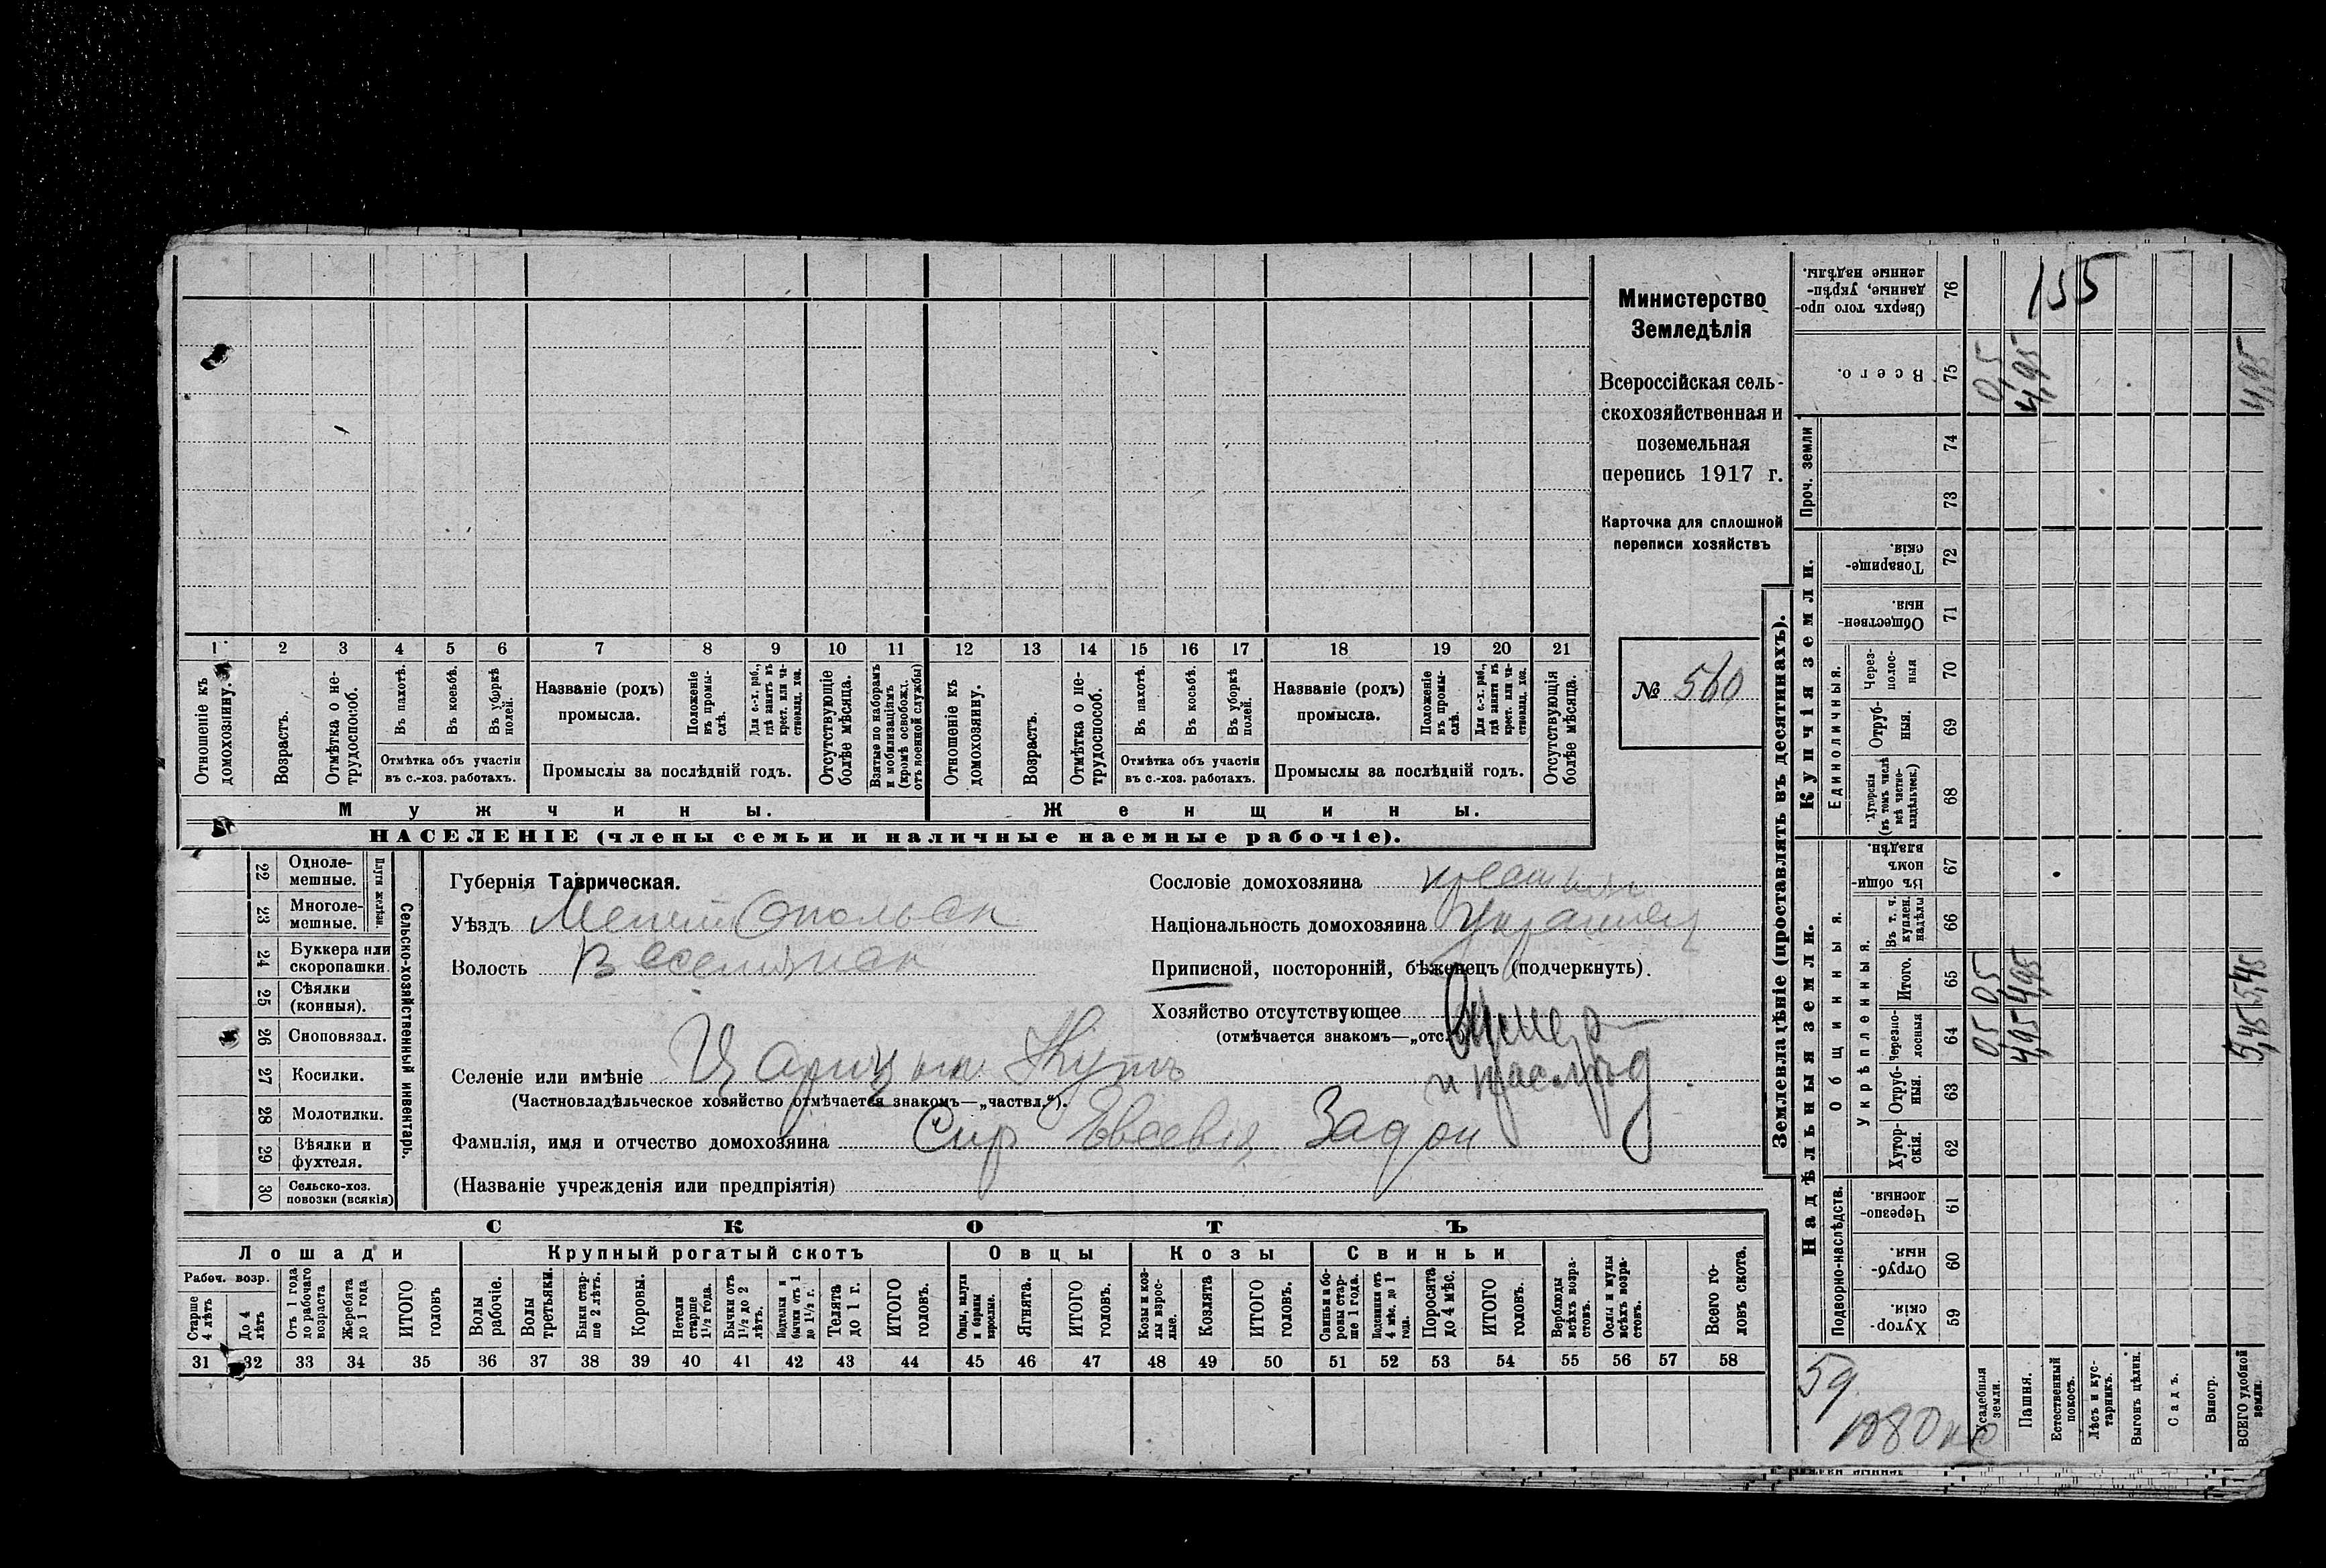 Министерство
Земледѣлія
Всероссійская сель-
скохозяйственная и
поземельная
перепись 1917 г.
Карточка для сплошной
переписи хозяйствъ
№ 560
1 2 3 4 5 6 7 8 9 10 11 12 13 14 15 16 17 18 19 20 21
Отношеніе къ домохозяину.
Возрастъ.
Отмѣтка о не-трудоспособ.
Въ пахотѣ.
Въ косьбѣ.
Въ уборкѣ полей.
Отмѣтка объ участіи
въ с.-хоз. работахъ.
Названіе (родъ)
промысла.
Положеніе въ промы-слѣ.
Для с.-х. раб., гдѣ занятъ въ крест. или ча-стновлад. хоз.
Промыслы за послѣдній годъ.
Отсутствующіе болѣе мѣсяца.
Взятые по наборамъ и мобилизаціямъ (кромѣ освобожд. отъ военной службы)
Отношеніе къ домохозяину.
Возрастъ.
Отмѣтка о не-трудоспособ.
Въ пахотѣ.
Въ косьбѣ.
Въ уборкѣ полей.
Отмѣтка объ участіи
въ с.-хоз. работахъ.
Названіе (родъ)
промысла.
Положеніе въ промы-слѣ.
Для с.-х. раб., гдѣ заняти въ крест. или ча-стновлад. хоз.
Промыслы за послѣдній годъ.
Отсутствующія болѣе мѣсяца.
Мужчины.
Женщины.
НАСЕЛЕНІЕ (члены семьи и наличные наемные рабочіе).
22 Одноле-мешные.
23 Многоле-мешные.
Плуги желѣзн.
24 Буккера или скоропашки
25 Сѣялки (конныя).
26 Сноповязал.
27 Косилки.
28 Молотилки.
29 Вѣялки и фухтеля.
30 Сельско-хоз. повозки (всякія)
Сельско-хозяйственный инвентарь.
Губернія Таврическая.
Уѣздъ
Волость
Селеніе или имѣніе Цариц кн. Кутъ
(Частновладѣльческое хозяйство отмѣчается знакомъ—„частвл.“).
Фамилія, имя и отчество домохозяина Сир Евсевія Задон
(Названіе учрежденія или предпріятія)
Сословіе домохозяина
Національность домохозяина Украинец
Приписной, посторонній, бѣженецъ (подчеркнуть).
Хозяйство отсутствующее
(отмѣчается знакомъ—„отс.
СКОТЪ
Лошади
Крупный рогатый скотъ
Овцы
Козы
Свиньи
Рабоч. возр.
Старше 4 лѣтъ
До 4 лѣтъ
Отъ 1 года до рабочаго возраста
Жеребята до 1 года
ИТОГО головъ
Волы рабочіе.
Волы третьяки.
Быки стар-ше 2 лѣтъ.
Коровы.
Нетели старше 1½ года.
Бычки отъ 1½ до 2 лѣтъ.
Подтелки и бычки отъ 1 до 1½ г.
Телята до 1 г.
ИТОГО головъ.
Овцы, валухи и бараны взрослые.
Ягнята.
ИТОГО головъ.
Козы и коз-лы взрос-лые.
Козлята
ИТОГО головъ.
Свиньи и бо-ровы стар-ше 1 года.
Подсвинки отъ 4 мѣс. до 1 года.
Поросята до 4 мѣс.
ИТОГО головъ.
Верблюды всѣхъ возра-стовъ.
Ослы и мулы всѣхъ возра-стовъ.
Всего го-ловъ скота.
31 32 33 34 35 36 37 38 39 40 41 42 43 44 45 46 47 48 49 50 51 52 53 54 55 56 57 58
Землевладѣніе (проставлять въ десятинахъ).
Надѣльныя земли.
Купчія земли.
Проч. земли
Подворно-наслѣдств.
Общинныя.
Укрѣпленныя.
Единоличныя.
Хутор-скія. 59
Отруб-ныя. 60
Черезпо-лосныя. 61
Хутор-скія. 62
Отруб-ныя. 63
Черезпо-лосныя 64
Итого. 65
Въ т. ч. куплен. надѣлы 66
Въ общи-номъ владѣн. 67
Хуторскія (въ томъ числѣ всѣ частно-владѣльческ.) 68
Отруб-ныя. 69
Через-полос-ныя 70
Обществен-ныя. 71
Товарище-скія. 72
73
74
Всего. 75
Сверхъ того про-данные, укрѣп-ленные надѣлы. 76
Усадебныя земли. 0,5 0,5 0,5
Пашня. 4,95 4,95 4,95
155
Естественный покосъ.
Лѣсъ и кус-тарникъ.
Выгонъ цѣлин.
Садъ.
Виногр.
ВСЕГО удобной земли. 5,45 5,45 4,95
59
1080